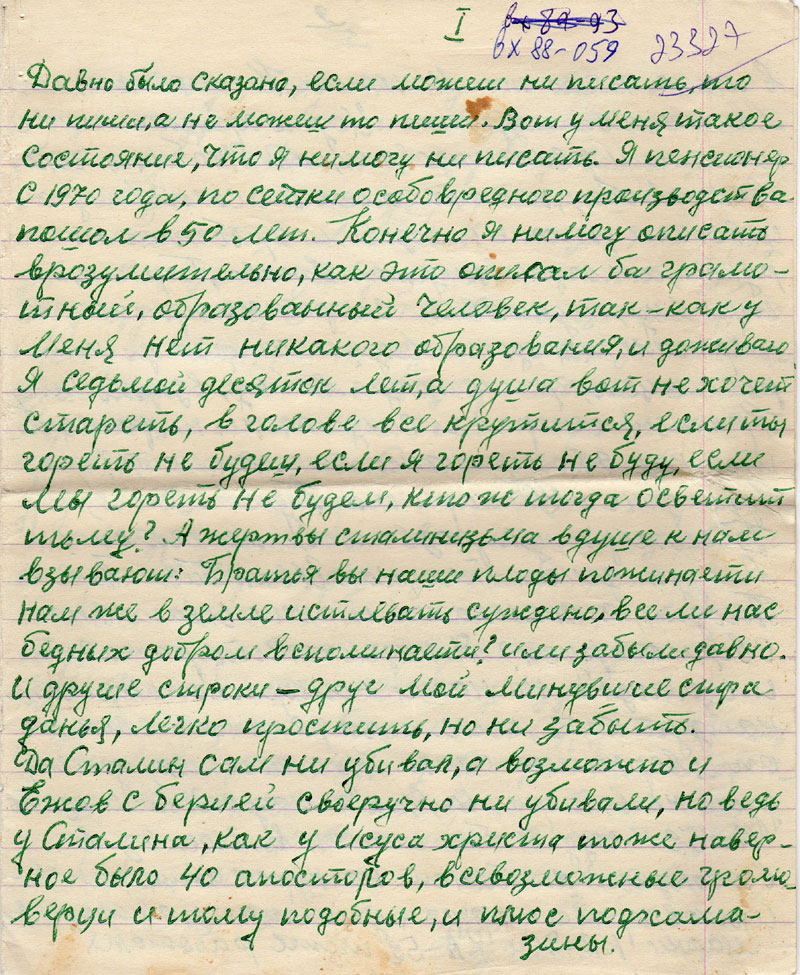 I
вх 89-93
вх 88-059 23327
Давно было сказано, если можеш ни писать, то
ни пиши, а не можеш то пиши. Вот у меня такое
состояние, что я нимогу ни писать. Я пенсионер
с 1970 года, по сетки особовредного производства
пошол в 50 лет. Конечно я нимогу описать
врозумительно, как это описал ба грамо-
тный, образованный человек, так-как у
меня нет никакого образования, и доживаю
я седьмой десяток лет, а душа вот не хочет
стареть, в голове все крутится, если ты
гореть не будеш, если я гореть не буду, если
мы гореть не будем, кто ж тогда осветит
тьму? А жертвы сталинизьма вдуше к нам
взывают: Братья вы наши плоды пожинаети
нам же в земле истлевать суждено, все ли нас
бедных добром вспоминаети? или забыли давно.
И другие строки – друг мой минувшие стра
данья, легко простить, но ни забыть.
Да Сталин сам ни убивал, а возможно и
Ежов с берией своеручно ни убивали, но ведь
у Сталина, как у Исуса христа тоже навер-
ное было 40 апосторов, всевозможные громо
верци и тому подобные, и плюс подхама-
зины.